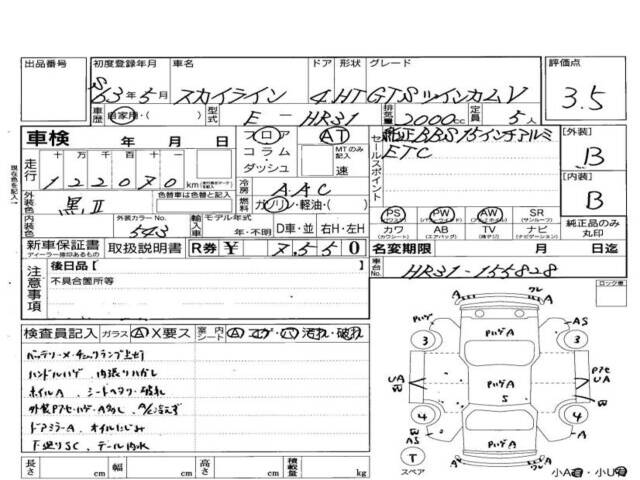 出品番号
初度登録年月 車名 ドア 形状 グレード 評価点
S63年5月 スカイライン 4 HT GTSツインカムV 3.5
車歴 自家用・( ) 型式 E-HR31 排気量 2000cc 定員 5人
車検 年 月 日
フロア コラム・ダッシュ AT MTのみ記入 速
セールスポイント 純正BBS15インチアルミ
ETC
[外装] B
[内装] B
現在色を記入
走行 十万千百十一
122070 km
冷房 AAC
燃料 ガソリン・軽油・( )
外装色 黒II 色替車は色替と記入
内装色 外装カラーNo. 543
輸入車 モデル年式 年・不明 D車・並 右H・左H
PS PW AW SR
(パワステ) (パワーウィンド) (アルミホイル) (サンルーフ)
カワ AB TV ナビ
(カワシート) (エアバッグ) (純テレビ) (ナビゲーション)
純正品のみ丸印
新車保証書 取扱説明書 R券 ¥ 7,550
ディーラー捺印あるもの
名変期限 月 日迄
車台No. HR31-155828
注意事項
後日品【 】
不具合箇所等
ロック要
検査員記入 ガラス A X要ス 室内シート A コゲ・穴 汚れ・破れ
バッテリー×・チェックランプ点灯
ハンドルハゲ、内張りハガレ
ホイルA、シートヘタリ・破れ
外装Pアセ・ハゲ・A多し、A/C冷えず
ドアミラーA、オイルにじみ
下廻りSC、テール内水
A ワレ A
PハゲA
3 3
AS
UA
PハゲA
S
Pアセ
UA
4 4
AS
PハゲA
T
スペア
A ワレ A
長さ cm 幅 cm 高さ cm 積載量 kg
小A有・小U有